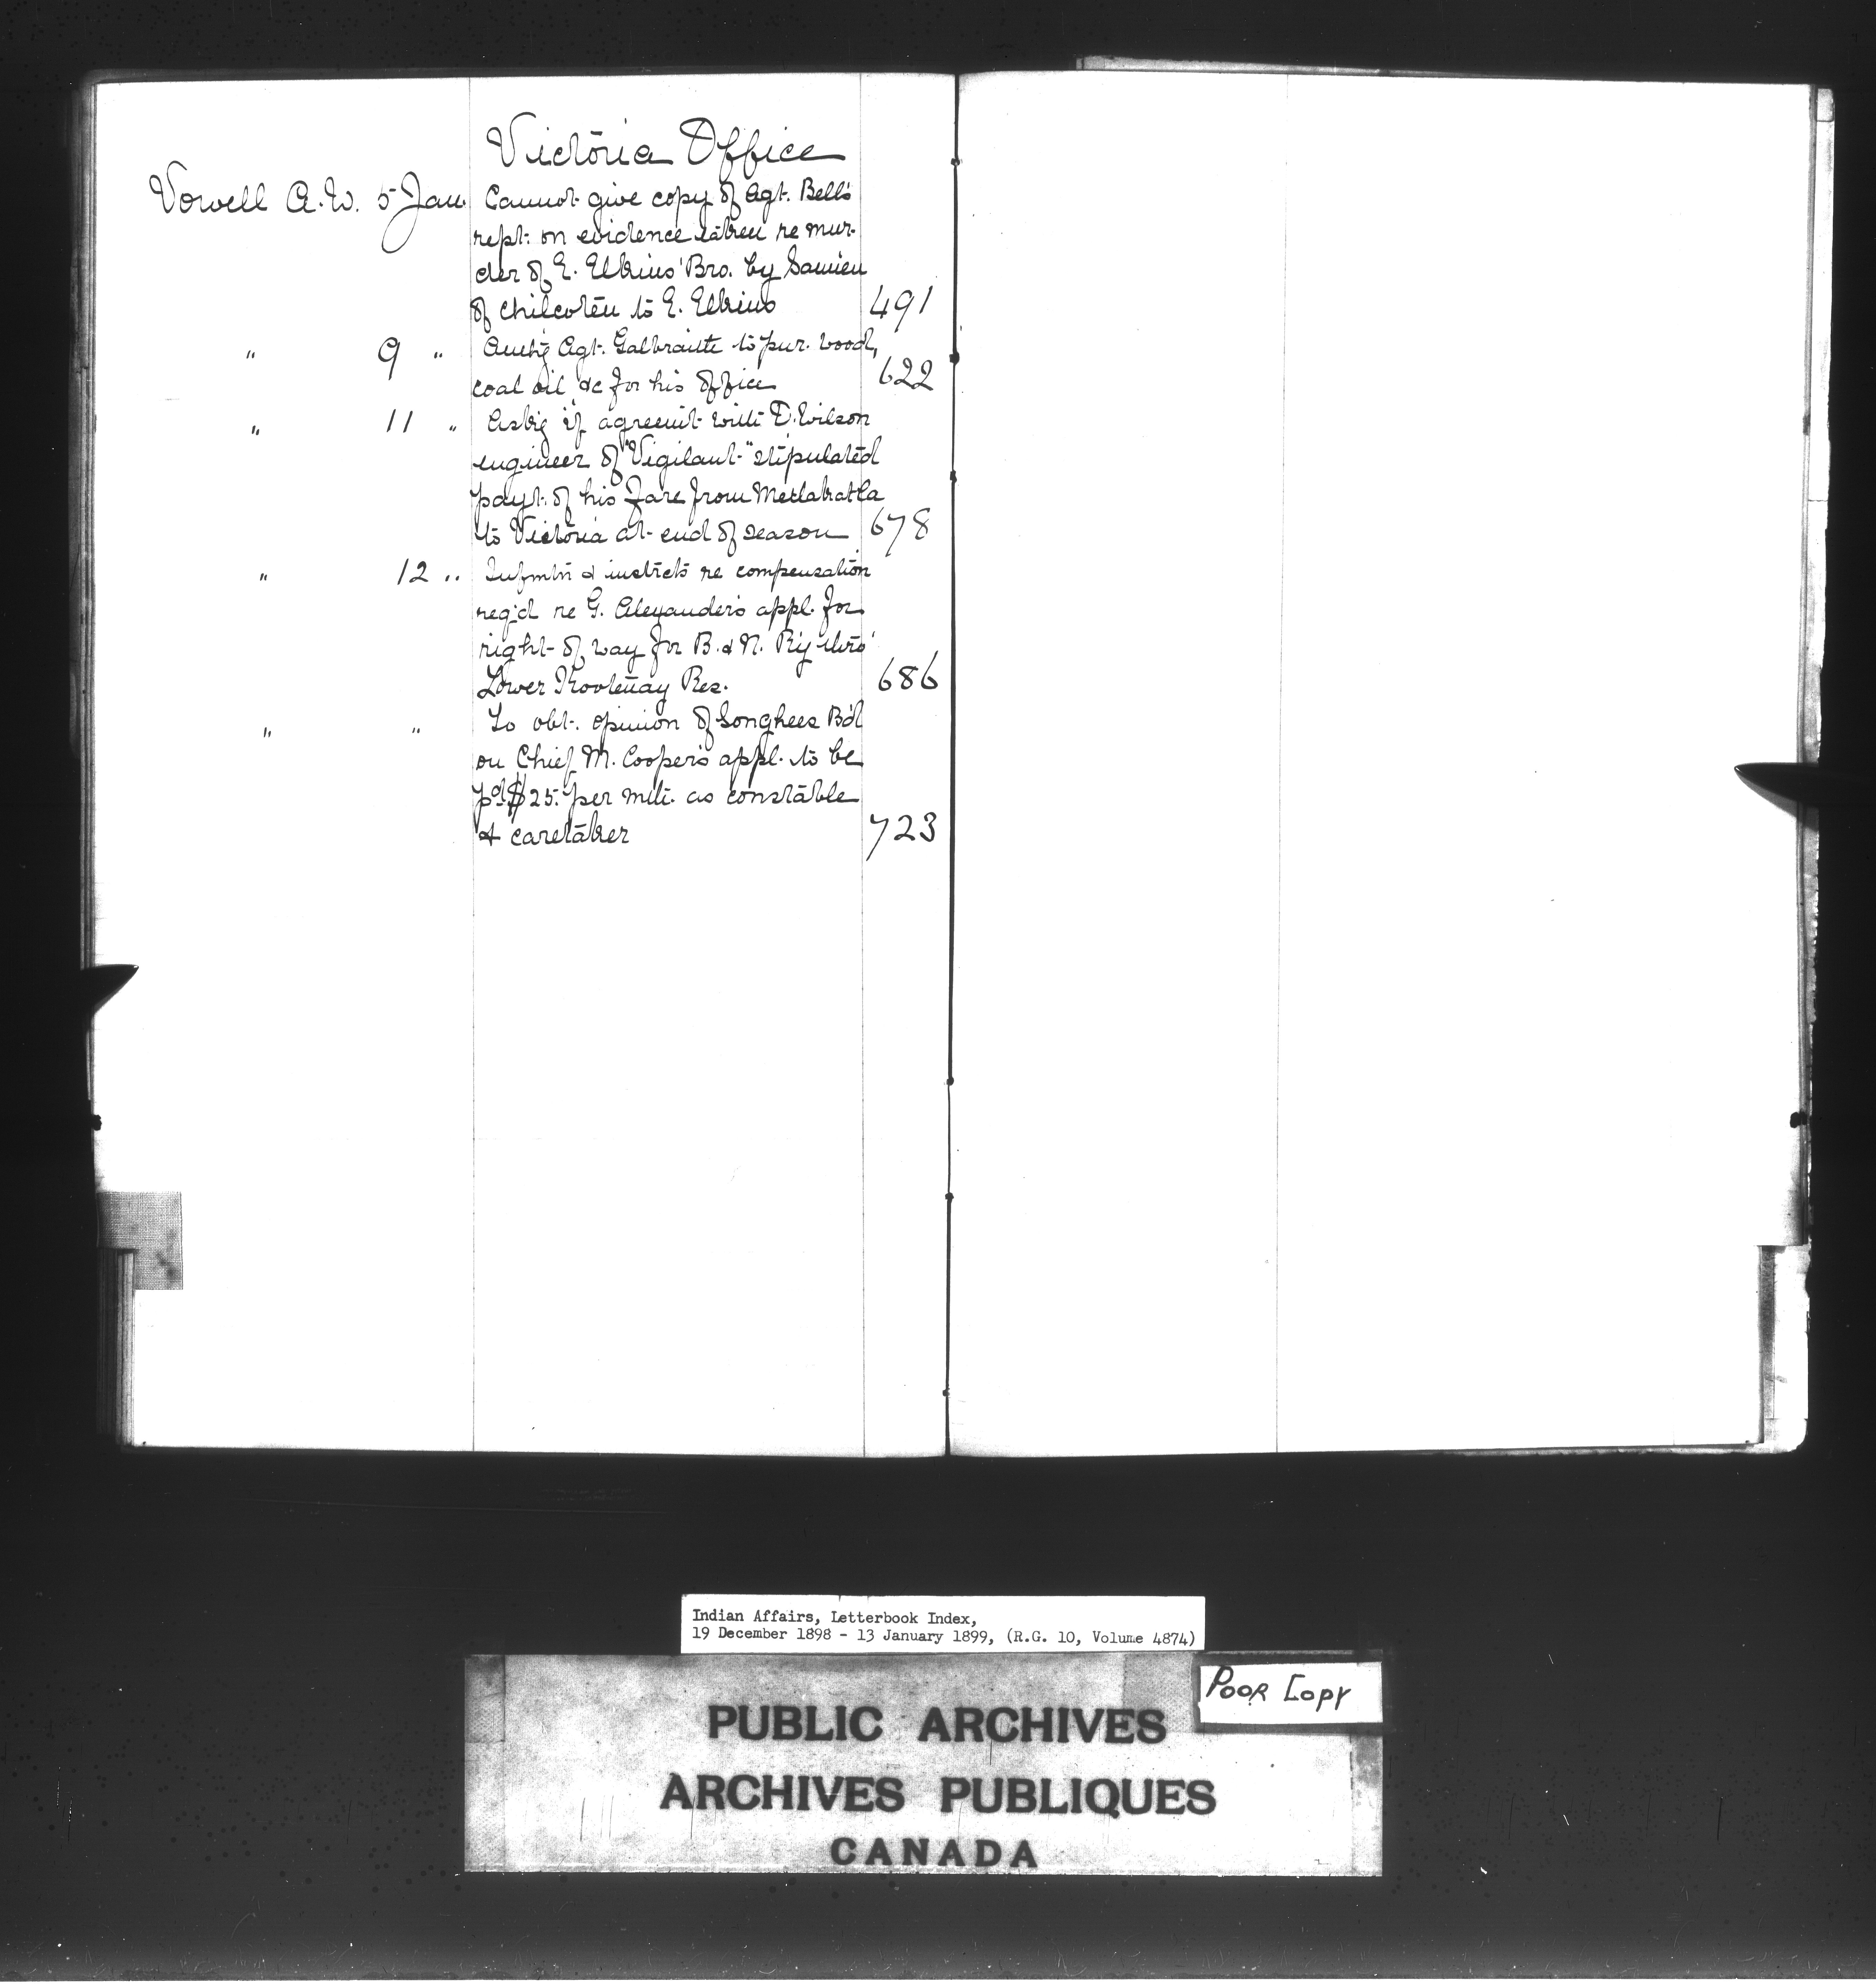 Victoria Office
Vowell A.W. 5 Jan. Cannot give copy of Agt. Bell's
rept. on evidence taken re mur-
der of E. Elkins' Bro. by Samien
of Chilcoten to E. Elkins 491
" 9 " Authg Agt. Galbraith to pur. wood,
coal oil &c for his office 622
" 11 " Askg if agreemt with D. Wilson
engineer of "Vigilant" stipulated
payt. of his fare from Metlakatla
to Victoria at end of season 678
" 12 " Infmtn & instrcts re compensation
req'd re G. Alexander's appl. for
right of way for B. & N. Ry thro'
Lower Kootenay Res. 686
" " To obt. opinion of Songhees Bd
on Chief M. Cooper's appl. to be
pd $25. per mth. as constable
& caretaker 723
Indian Affairs, Letterbook Index,
19 December 1898 - 13 January 1899, (R.G. 10, Volume 4874)
Poor Copy
PUBLIC ARCHIVES
ARCHIVES PUBLIQUES
CANADA